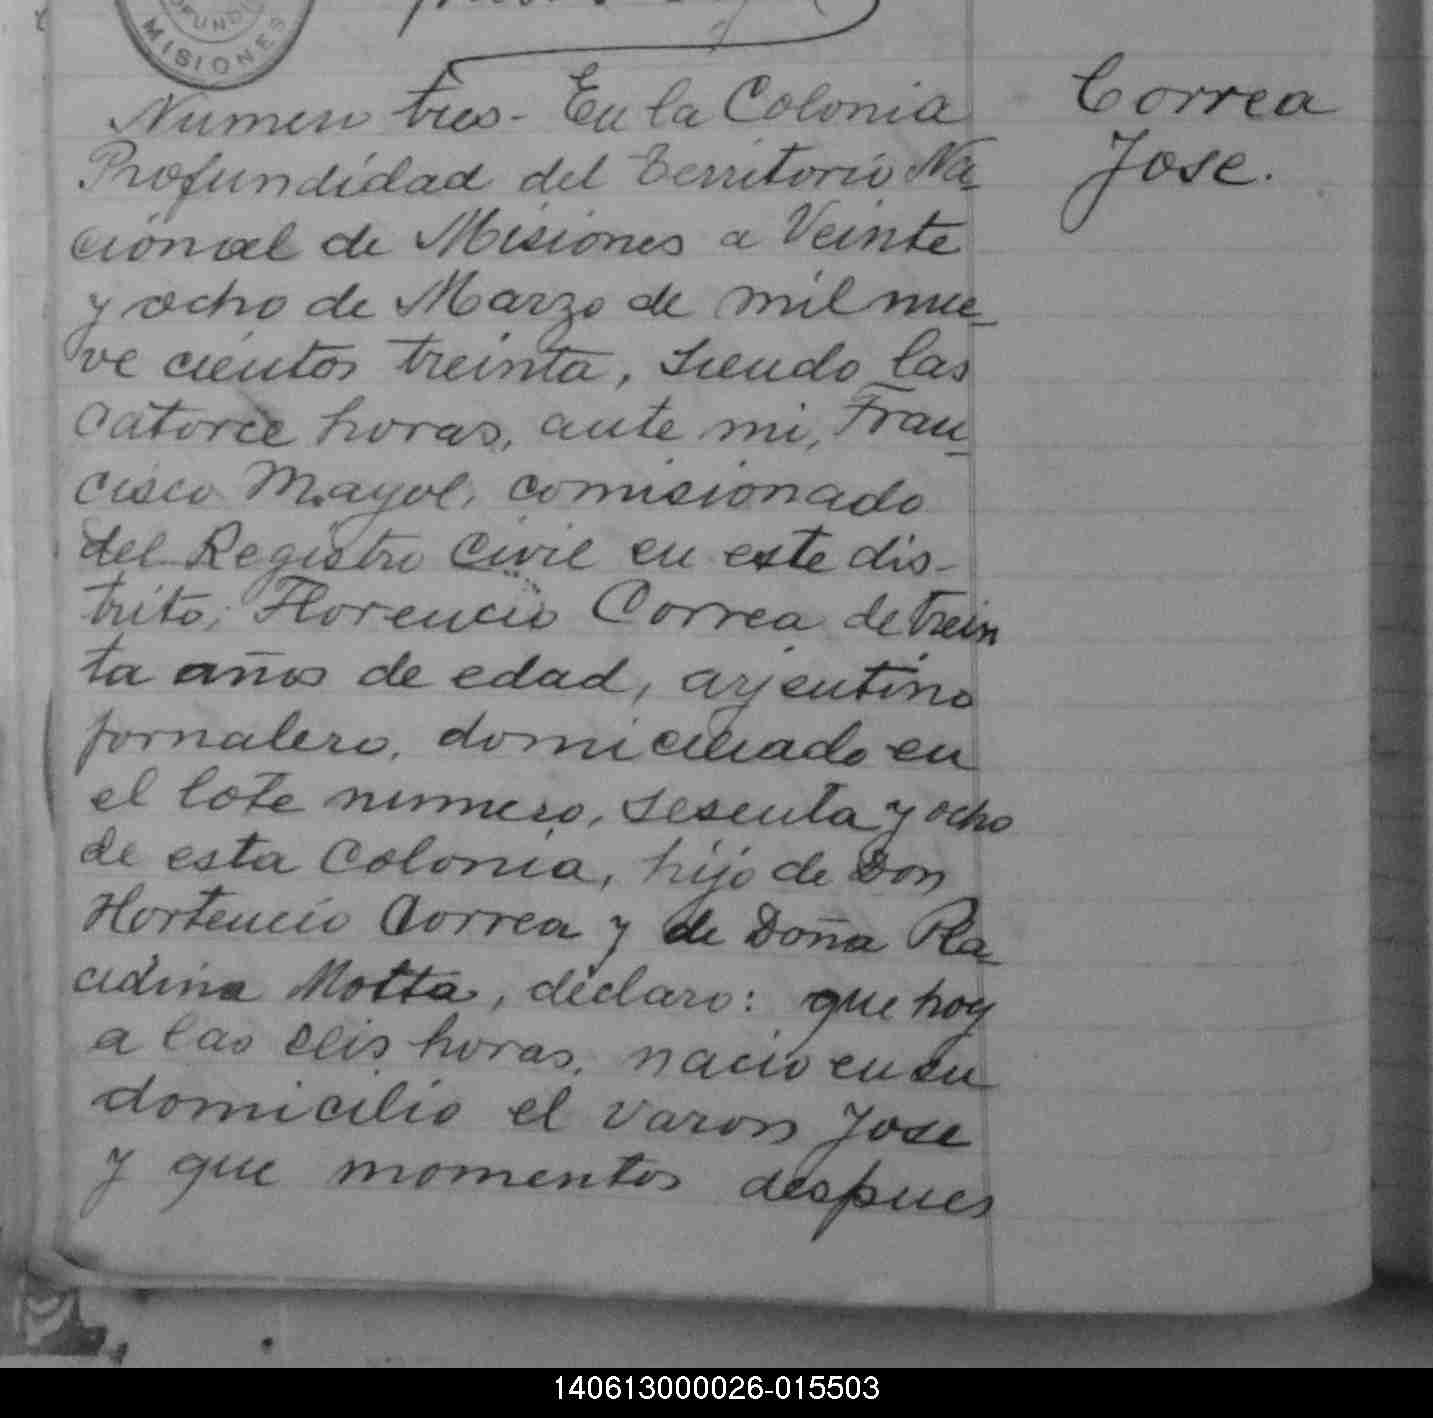 PROFUNDID
MISIONES
Numero tres - En la Colonia
Profundidad del Territorio Na-
cional de Misiones a Veinte
y ocho de Marzo de mil nue-
ve cientos treinta, siendo las
catorce horas, ante mi, Fran-
cisco Mayol, comisionado
del Registro Civil en este dis-
trito, Florencio Correa de trein
ta años de edad, arjentino
jornalero, domiciliado en
el lote numero, sesenta y ocho
de esta Colonia, hijo de Don
Hortencio Correa y de Doña Pla-
cidina Motta, declaro: que hoy
a las seis horas, nacio en su
domicilio el varon Jose
y que momentos despues
Correa
Jose.
140613000026-015503